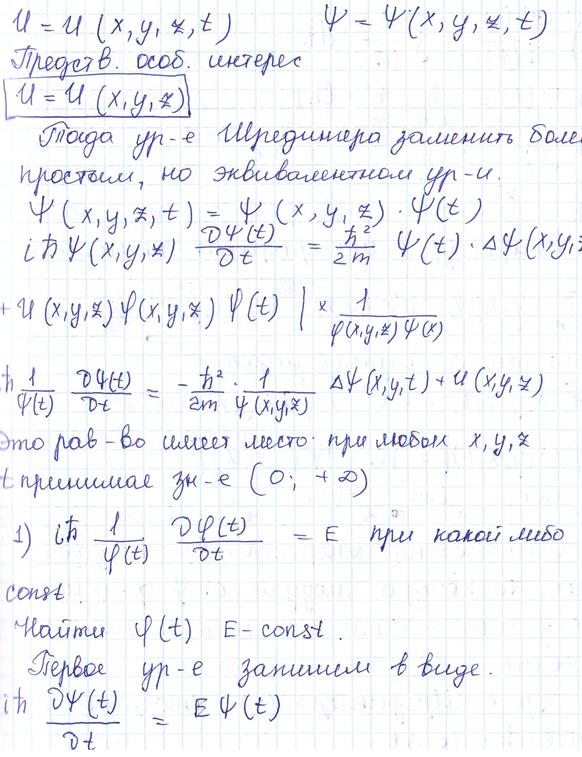 U = U (x, y, z, t)    Ψ = Ψ(x, y, z, t)
Предств. особ. интерес
U = U (x, y, z)
Тогда ур-е Шредингера заменить боле
простым, но эквивалентном ур-и.
Ψ (x, y, z, t) = Ψ (x, y, z) · Ψ(t)
iħ Ψ(x, y, z) ∂Ψ(t)/∂t = ħ²/2m Ψ(t) · ΔΨ(x, y, z
+ U (x, y, z) φ(x, y, z) φ(t) | × 1/φ(x, y, z) Ψ(x)
iħ 1/Ψ(t) ∂Ψ(t)/∂t = - ħ²/2m · 1/Ψ(x, y, z) ΔΨ(x, y, t) + U (x, y, z)
Это рав-во имеет место при любом x, y, z
t принимае зн-е (0; +∞)
1) iħ 1/φ(t) ∂φ(t)/∂t = E при какой либо
const.
Найти φ(t) E - const.
Первое ур-е запишем в виде.
iħ ∂Ψ(t)/∂t = E Ψ(t)